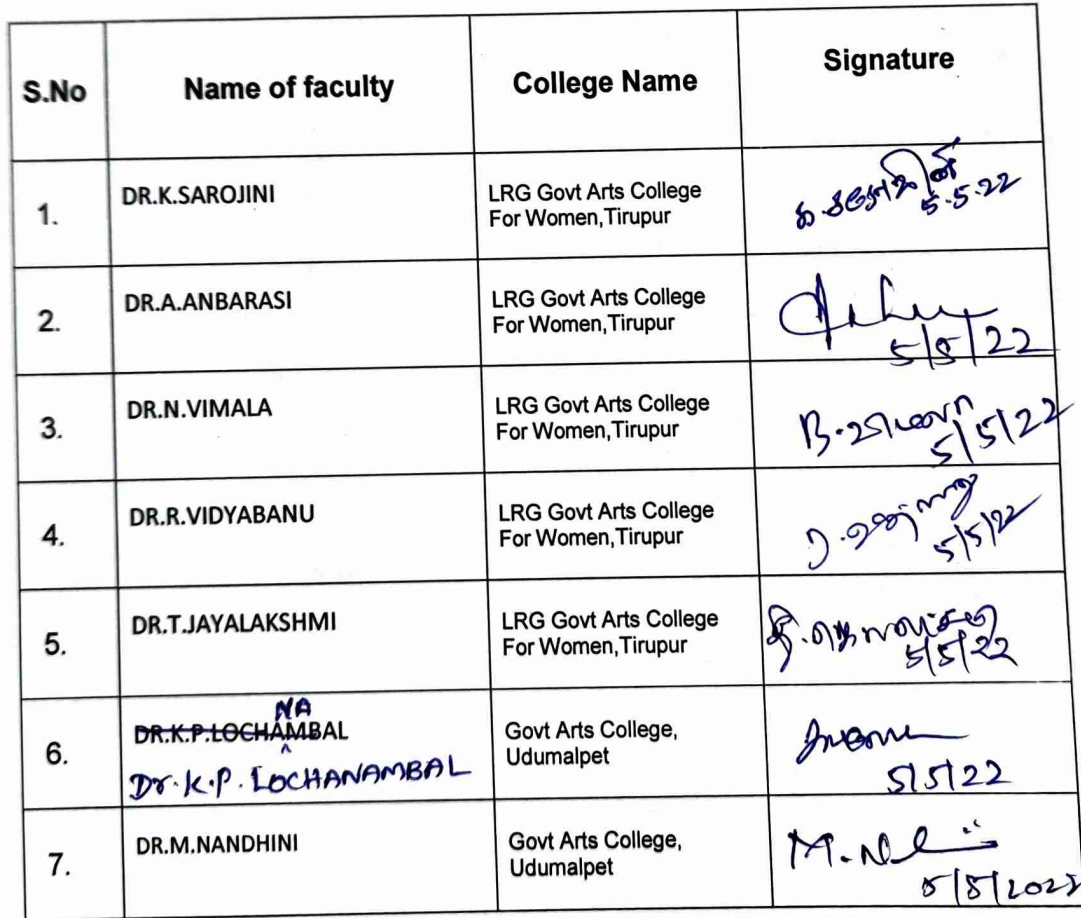 S.No Name of faculty College Name Signature
1. DR.K.SAROJINI LRG Govt Arts College
For Women,Tirupur
க. சரோஜினி
5.5.22
2. DR.A.ANBARASI LRG Govt Arts College
For Women,Tirupur
5/5/22
3. DR.N.VIMALA LRG Govt Arts College
For Women,Tirupur
5/5/22
4. DR.R.VIDYABANU LRG Govt Arts College
For Women,Tirupur
5/5/22
5. DR.T.JAYALAKSHMI LRG Govt Arts College
For Women,Tirupur
5/5/22
NA
6. DR.K.P.LOCHAMBAL Govt Arts College,
Udumalpet
Dr.K.P. LOCHANAMBAL
5/5/22
7. DR.M.NANDHINI Govt Arts College,
Udumalpet
5/5/2022